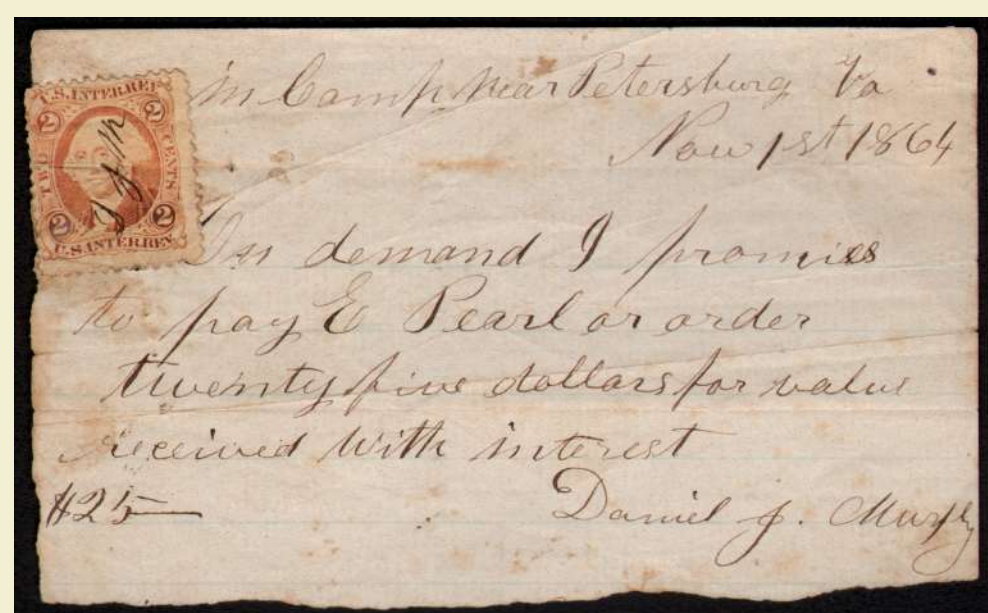 U.S. INTER. REV.
2 2
TWO CENTS
2 2
U.S. INTER. REV.
In Camp Near Petersburg Va
Nov 1st 1864
On demand I promiss
to pay E Pearl or order
twenty five dollars for value
received with interest
$25— Daniel J. Murphy